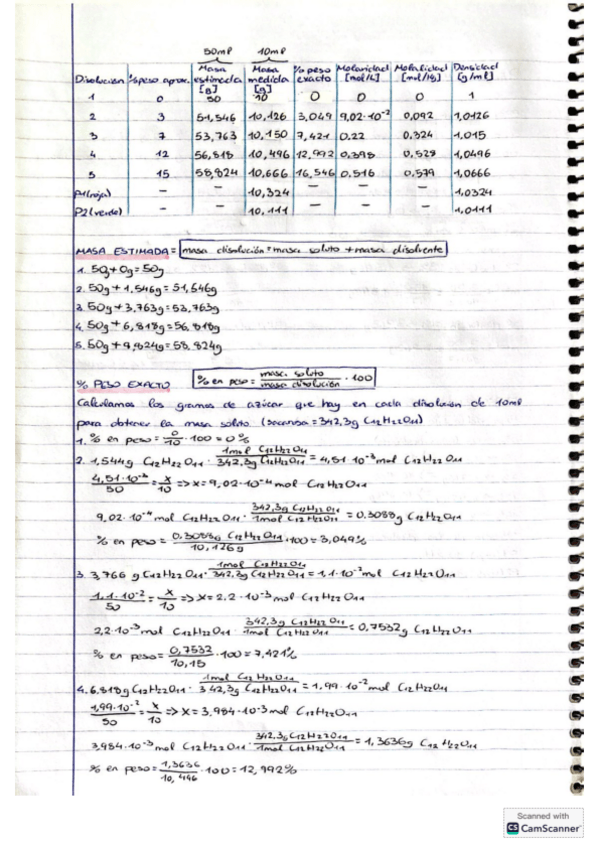 50ml 10ml
Disolución %peso aprox. Masa estimada [g] Masa medida [g] % peso exacto Molaridad [mol/L] Molalidad [mol/Kg] Densidad [g/ml]
1 0 50 10 0 0 0 1
2 3 51,546 10,126 3,049 9,02·10⁻² 0,092 1,0126
3 7 53,763 10,150 7,421 0.22 0,324 1,015
4 12 56,818 10,496 12,992 0,398 0,528 1,0496
5 15 58,824 10,666 16,546 0,516 0,579 1,0666
P1(roja) - - 10,324 - - - 1,0324
P2(verde) - - 10,111 - - - 1,0111
MASA ESTIMADA= masa disolución=masa soluto + masa disolvente
1. 50g+0g=50g
2. 50g+1,546g=51,546g
3. 50g+3,763g=53,763g
4. 50g+6,818g=56,818g
5. 50g+8,824g=58,824g
% PESO EXACTO % en peso= masa soluto / masa disolución · 100
Calculamos los gramos de azúcar que hay en cada disolución de 10ml
para obtener la masa soluto. (sacarosa=342,3g C₁₂H₂₂O₁₁)
1. % en peso= 0/10 · 100=0%
2. 1,544g C₁₂H₂₂O₁₁ · 1mol C₁₂H₂₂O₁₁ / 342,3g C₁₂H₂₂O₁₁ = 4,51·10⁻³ mol C₁₂H₂₂O₁₁
4,51·10⁻³/50 = x/10 => x=9,02·10⁻⁴ mol C₁₂H₂₂O₁₁
9,02·10⁻⁴ mol C₁₂H₂₂O₁₁ · 342,3g C₁₂H₂₂O₁₁ / 1mol C₁₂H₂₂O₁₁ = 0,3088g C₁₂H₂₂O₁₁
% en peso= 0,3088g C₁₂H₂₂O₁₁ / 10,126g · 100=3,049%
3. 3,766 g C₁₂H₂₂O₁₁ · 1mol C₁₂H₂₂O₁₁ / 342,3g C₁₂H₂₂O₁₁ = 1,1·10⁻² mol C₁₂H₂₂O₁₁
1,1·10⁻²/50 = x/10 => x=2,2·10⁻³ mol C₁₂H₂₂O₁₁
2,2·10⁻³ mol C₁₂H₂₂O₁₁ · 342,3g C₁₂H₂₂O₁₁ / 1mol C₁₂H₂₂O₁₁ = 0,7532g C₁₂H₂₂O₁₁
% en peso= 0,7532/10,15 · 100=7,421%
4. 6,818g C₁₂H₂₂O₁₁ · 1mol C₁₂H₂₂O₁₁ / 342,3g C₁₂H₂₂O₁₁ = 1,99·10⁻² mol C₁₂H₂₂O₁₁
1,99·10⁻²/50 = x/10 => x=3,984·10⁻³ mol C₁₂H₂₂O₁₁
3,984·10⁻³ mol C₁₂H₂₂O₁₁ · 342,3g C₁₂H₂₂O₁₁ / 1mol C₁₂H₂₂O₁₁ = 1,3636g C₁₂H₂₂O₁₁
% en peso= 1,3636/10,496 · 100=12,992%
Scanned with
CS CamScanner